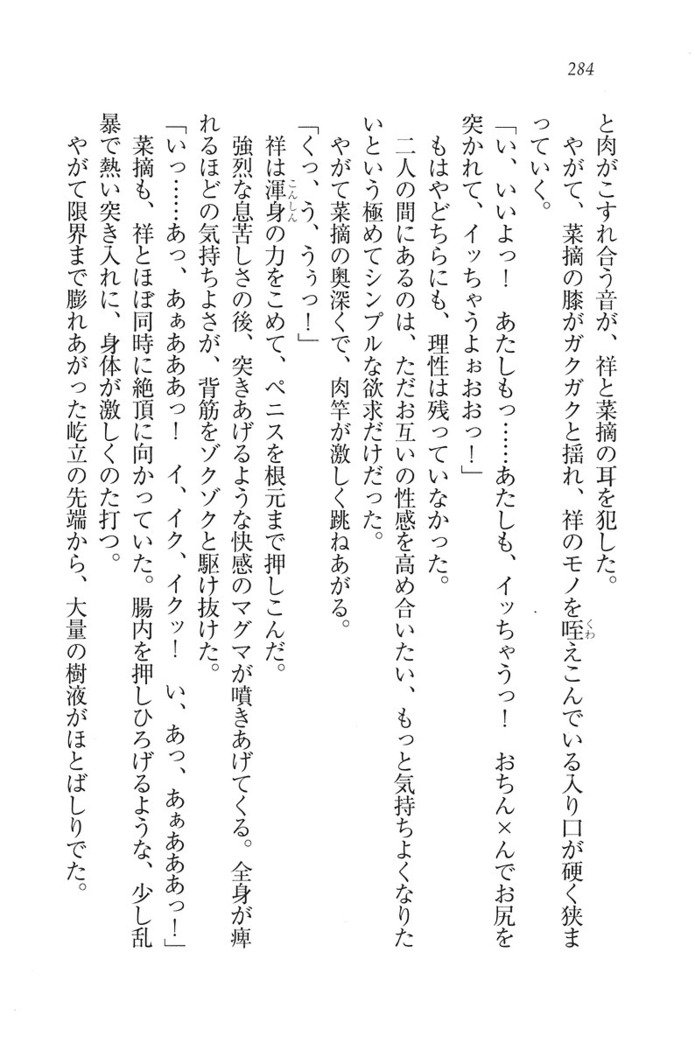 284
と肉がこすれ合う音が、祥と菜摘の耳を犯した。
やがて、菜摘の膝がガクガクと揺れ、祥のモノを咥えこんでいる入り口が硬く狭ま
っていく。
「い、いいよっ！　あたしもっ……あたしも、イッちゃうっ！　おちん×んでお尻を
突かれて、イッちゃうよぉおおっ！」
もはやどちらにも、理性は残っていなかった。
二人の間にあるのは、ただお互いの性感を高め合いたい、もっと気持ちよくなりた
いという極めてシンプルな欲求だけだった。
やがて菜摘の奥深くで、肉竿が激しく跳ねあがる。
「くっ、う、うぅっ！」
祥は渾身の力をこめて、ペニスを根元まで押しこんだ。
強烈な息苦しさの後、突きあげるような快感のマグマが噴きあげてくる。全身が痺
れるほどの気持ちよさが、背筋をゾクゾクと駆け抜けた。
「いっ……あっ、あぁあああっ！　イ、イク、イクッ！　い、あっ、あぁあああっ！」
菜摘も、祥とほぼ同時に絶頂に向かっていた。腸内を押しひろげるような、少し乱
暴で熱い突き入れに、身体が激しくのた打つ。
やがて限界まで膨れあがった屹立の先端から、大量の樹液がほとばしりでた。